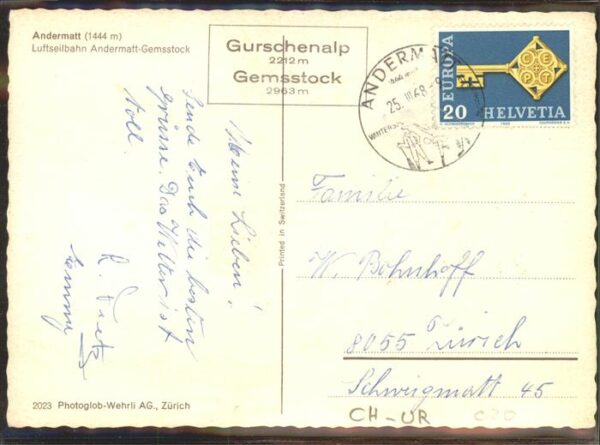 Andermatt (1444 m)
Luftseilbahn Andermatt-Gemsstock
Gurschenalp
2212 m
Gemsstock
2963 m
ANDERMATT
25. III. 68
WINTERSP
EUROPA
CEPT
20 HELVETIA
Meine Lieben!
Sende Euch die besten
Grüsse. Das Wetter ist
toll.
R.
Printed in Switzerland
Familie
W. Bohnhoff
8055 Zürich
Schweigmatt 45
2023 Photoglob-Wehrli AG., Zürich
CH-UR